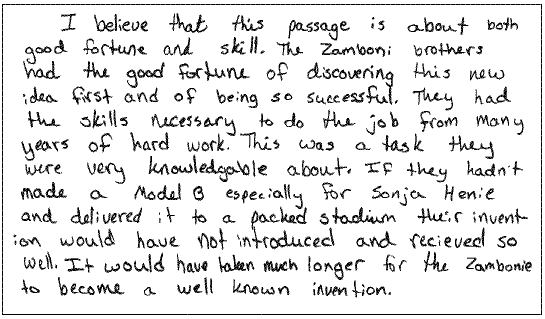 I believe that this passage is about both
good fortune and skill. The Zamboni brothers
had the good fortune of discovering this new
idea first and of being so successful. They had
the skills necessary to do the job from many
years of hard work. This was a task they
were very knowledgable about. If they hadn't
made a Model B especially for Sonja Henie
and delivered it to a packed stadium their invent-
ion would have not introduced and recieved so
well. It would have taken much longer for the Zambonie
to become a well known invention.